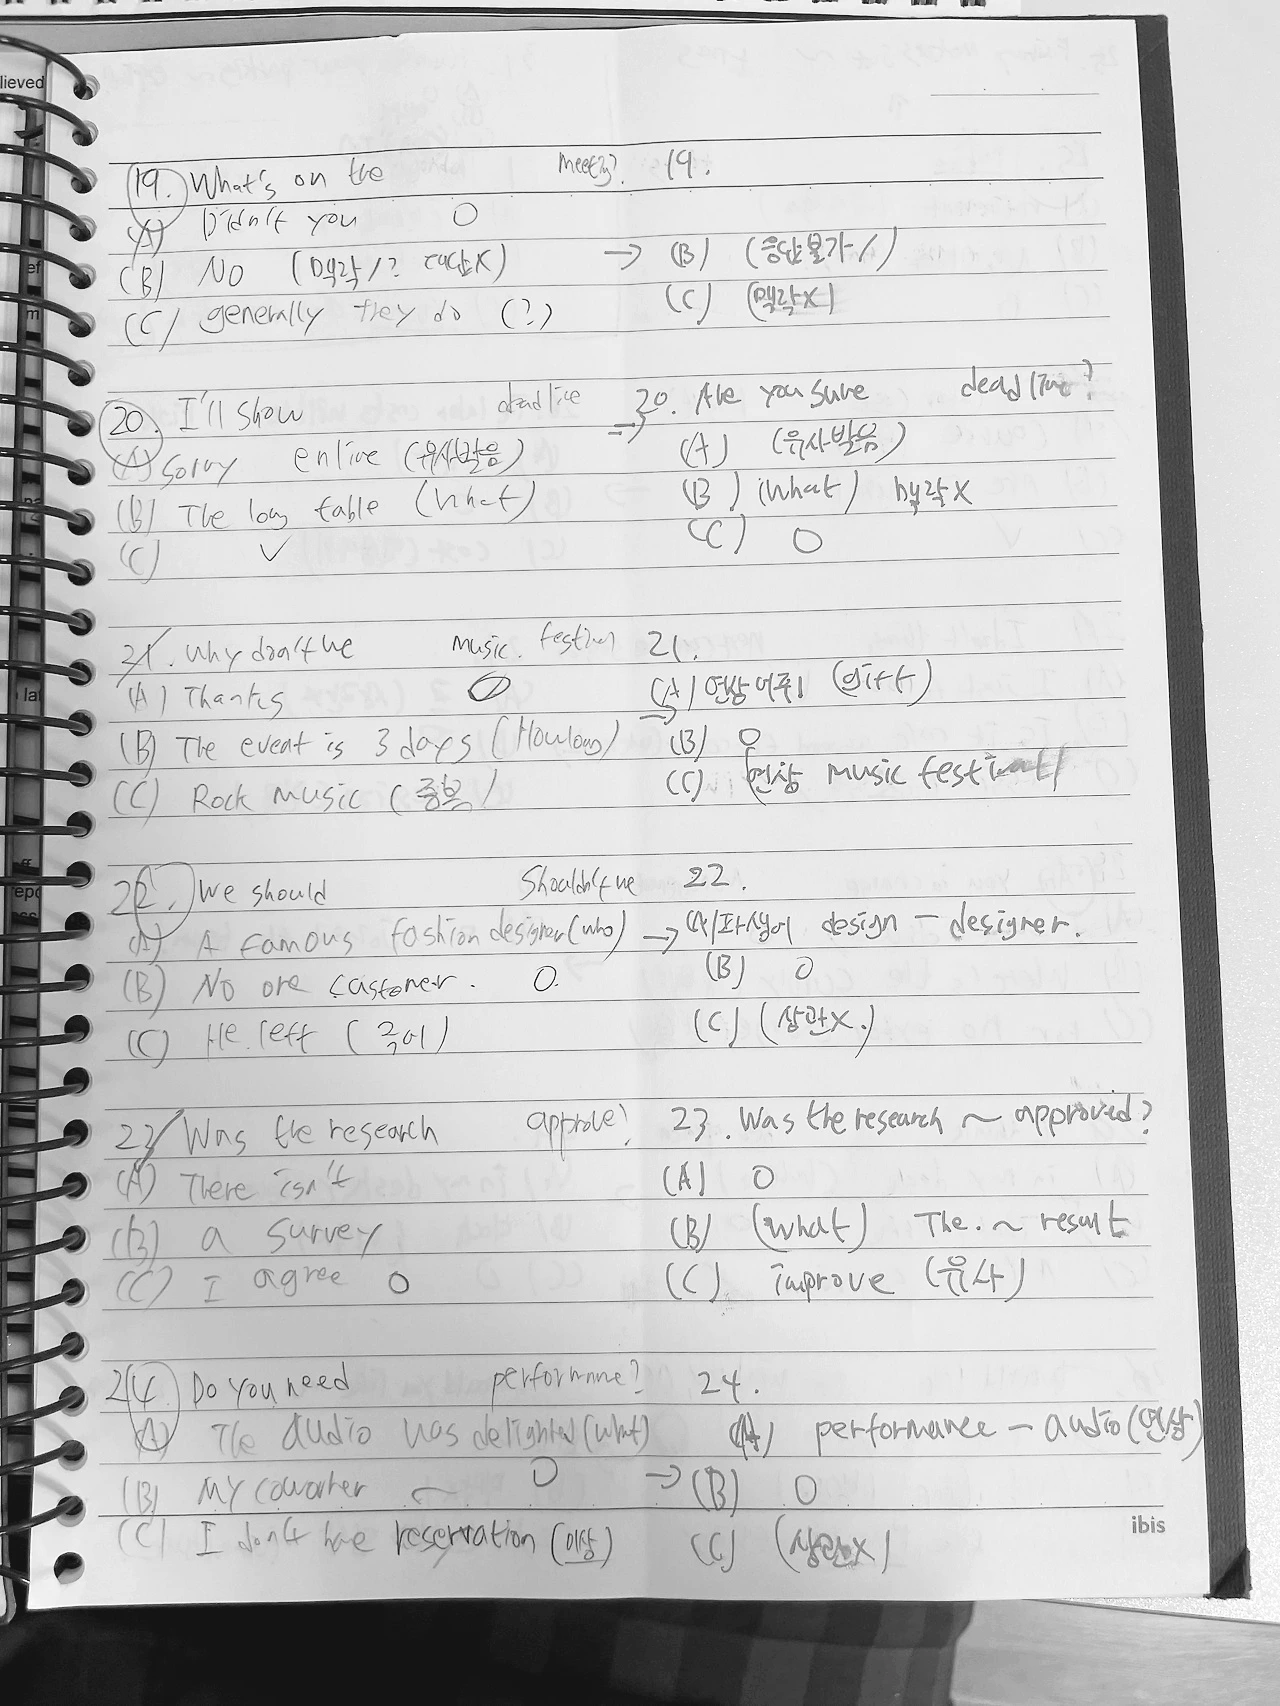 lieved
19. What's on the meeting? 19.
(A) Didn't you O
(B) No (맥락/? 대답X) → (B) (응답불가/)
(C) generally they do (?) (C) (맥락X)
20. I'll show deadline ⇒ 20. Are you sure deadline?
(A) Sorry entire (유사발음) (A) (유사발음)
(B) The long table (what) (B) (what) 맥락X
(C) ✓ (C) O
21. Why don't we music festival 21.
(A) Thanks O (A) 연상어휘 (gift)
(B) The event is 3 days (How long) → (B) O
(C) Rock music (중복) (C) (연상 music festival)
22. We should Shouldn't we 22.
(A) A famous fashion designer (who) → (A) 파생어 design - designer.
(B) No one customer. O (B) O
(C) He left (주어) (C) (상관X.)
23. Was the research approve? 23. Was the research ~ approved?
(A) There isn't (A) O
(B) a survey (B) (what) The. ~ result
(C) I agree O (C) improve (유사)
24. Do you need performance? 24.
(A) The audio was delighted (what) (A) performance - audio (연상)
(B) My coworker ~ O → (B) O
(C) I don't have reservation (이상) (C) (상관X)
ibis